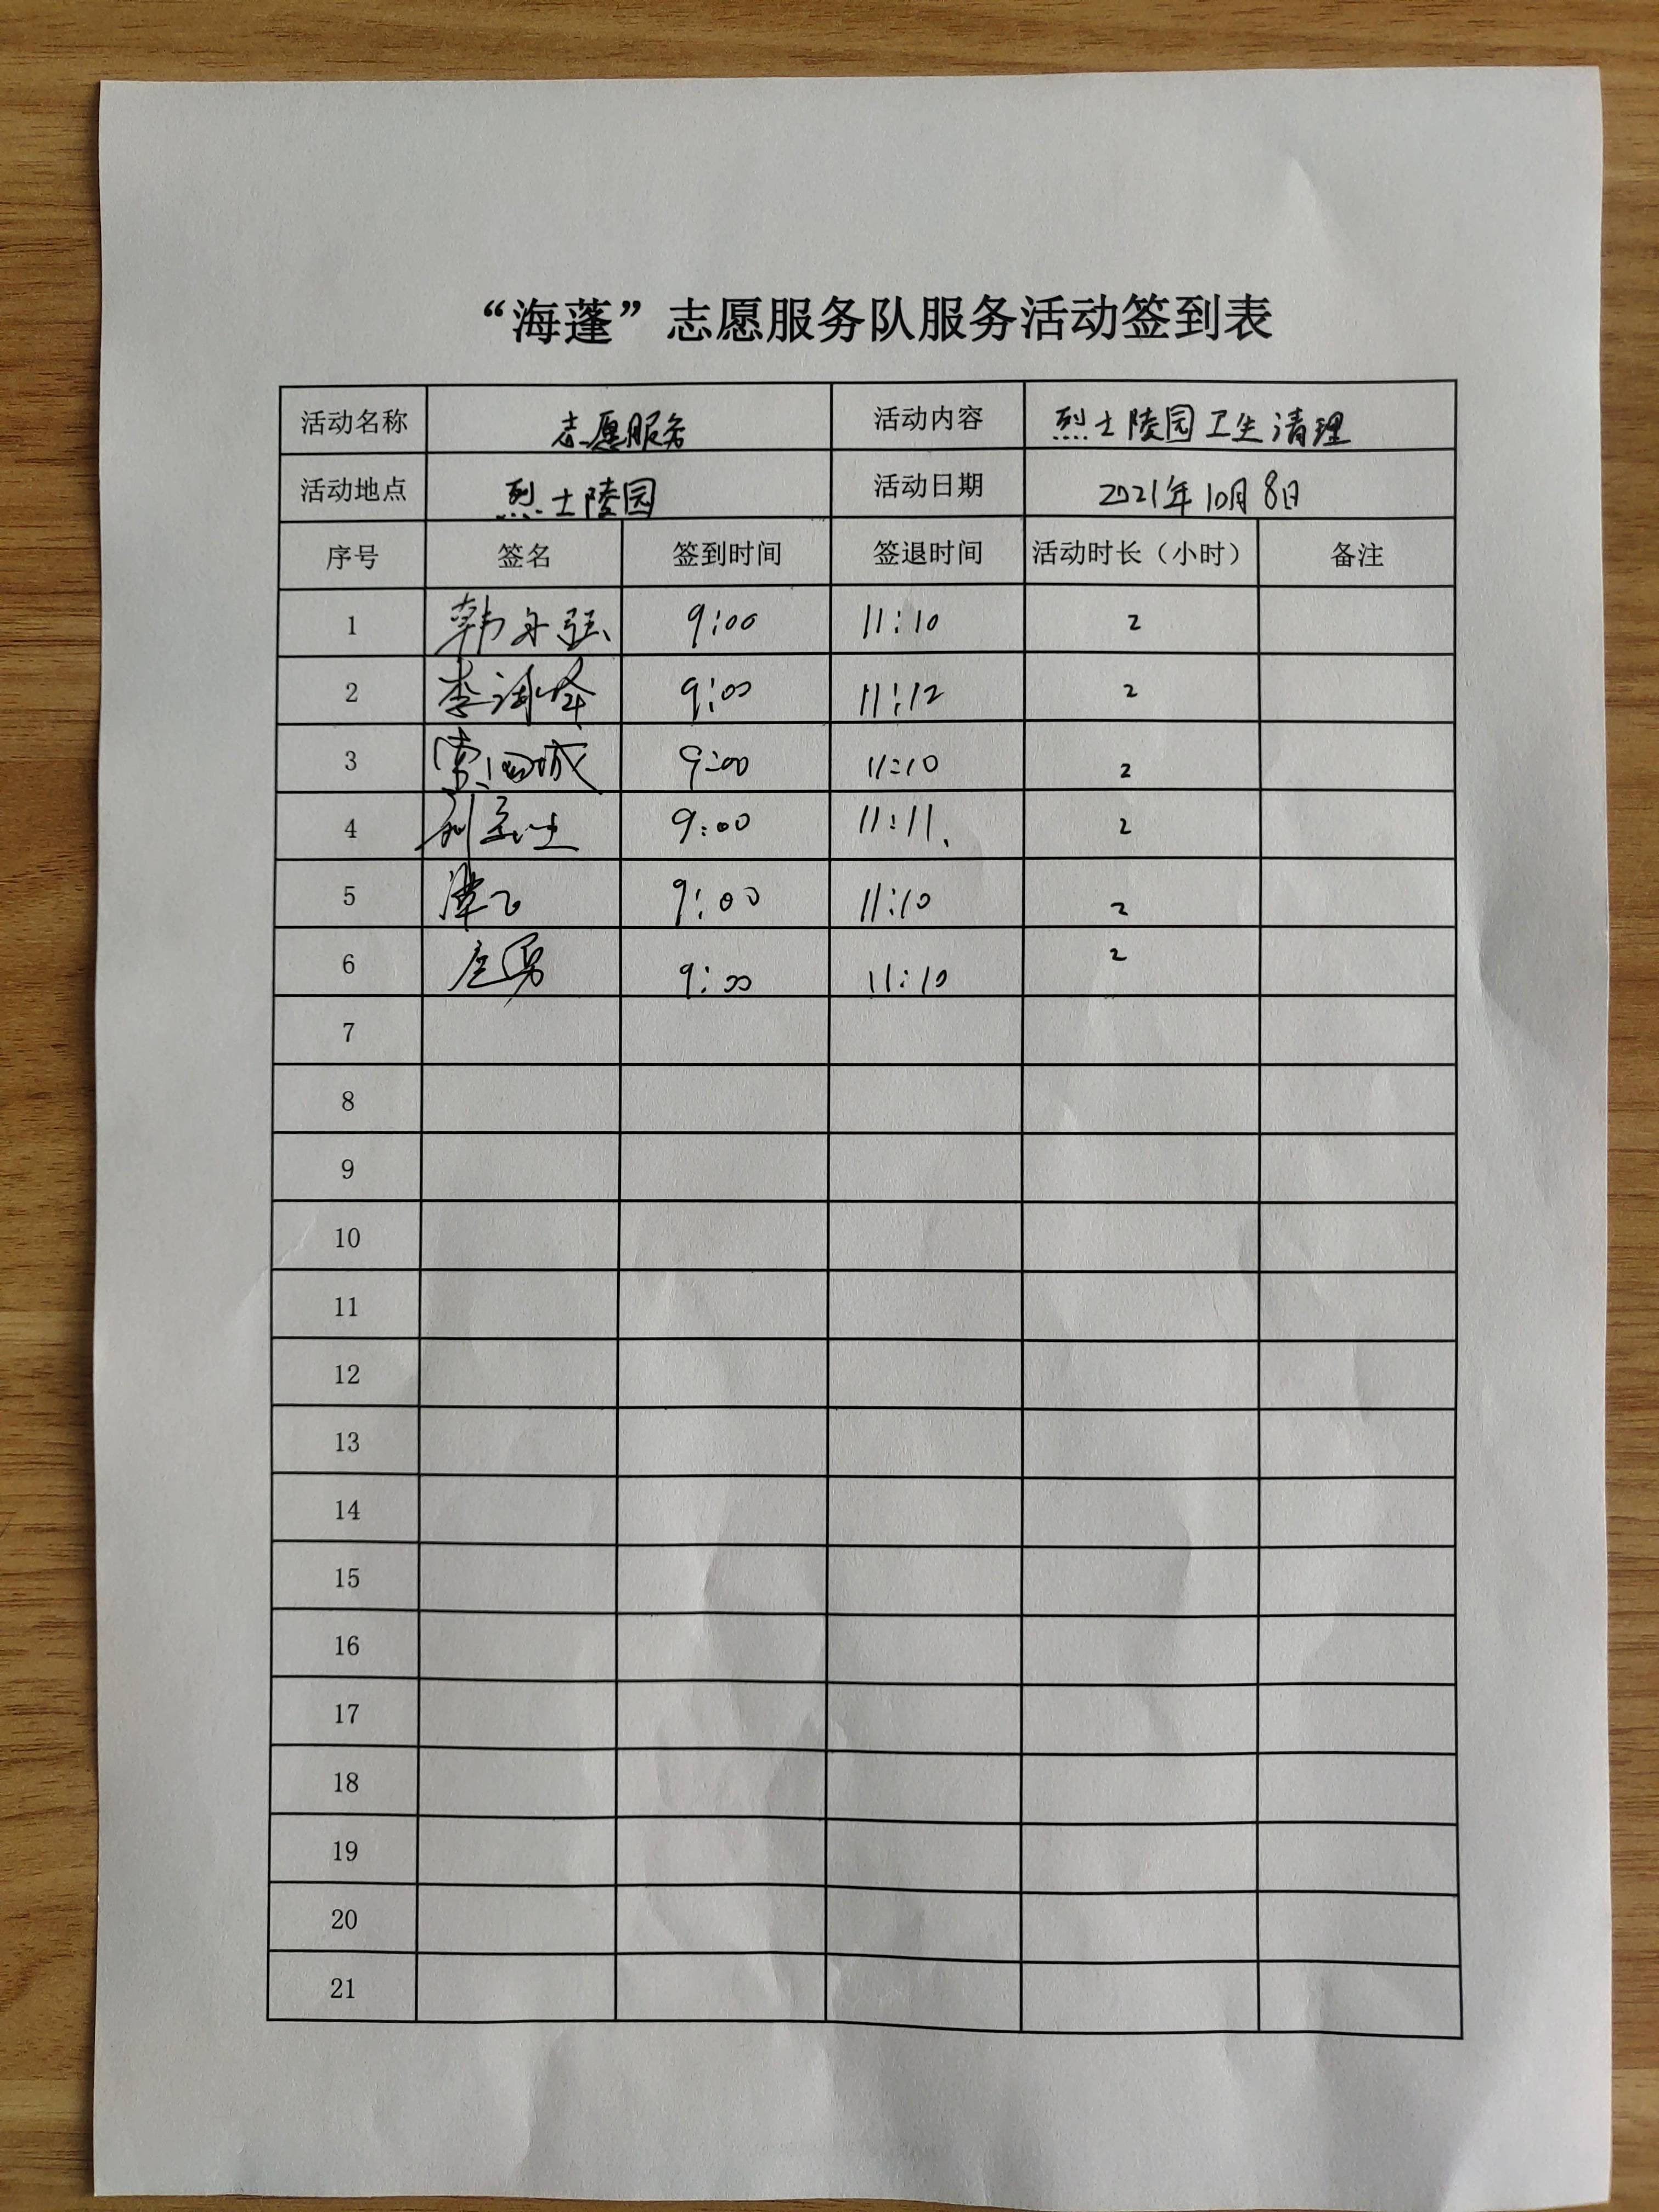 “海蓬”志愿服务队服务活动签到表
活动名称 志愿服务 活动内容 烈士陵园卫生清理
活动地点 烈士陵园 活动日期 2021年10月8日
序号 签名 签到时间 签退时间 活动时长（小时） 备注
1 韩 9:00 11:10 2
2 李 9:00 11:12 2
3 城 9:00 11:10 2
4 9:00 11:11. 2
5 9:00 11:10 2
6 9:00 11:10 2
7
8
9
10
11
12
13
14
15
16
17
18
19
20
21